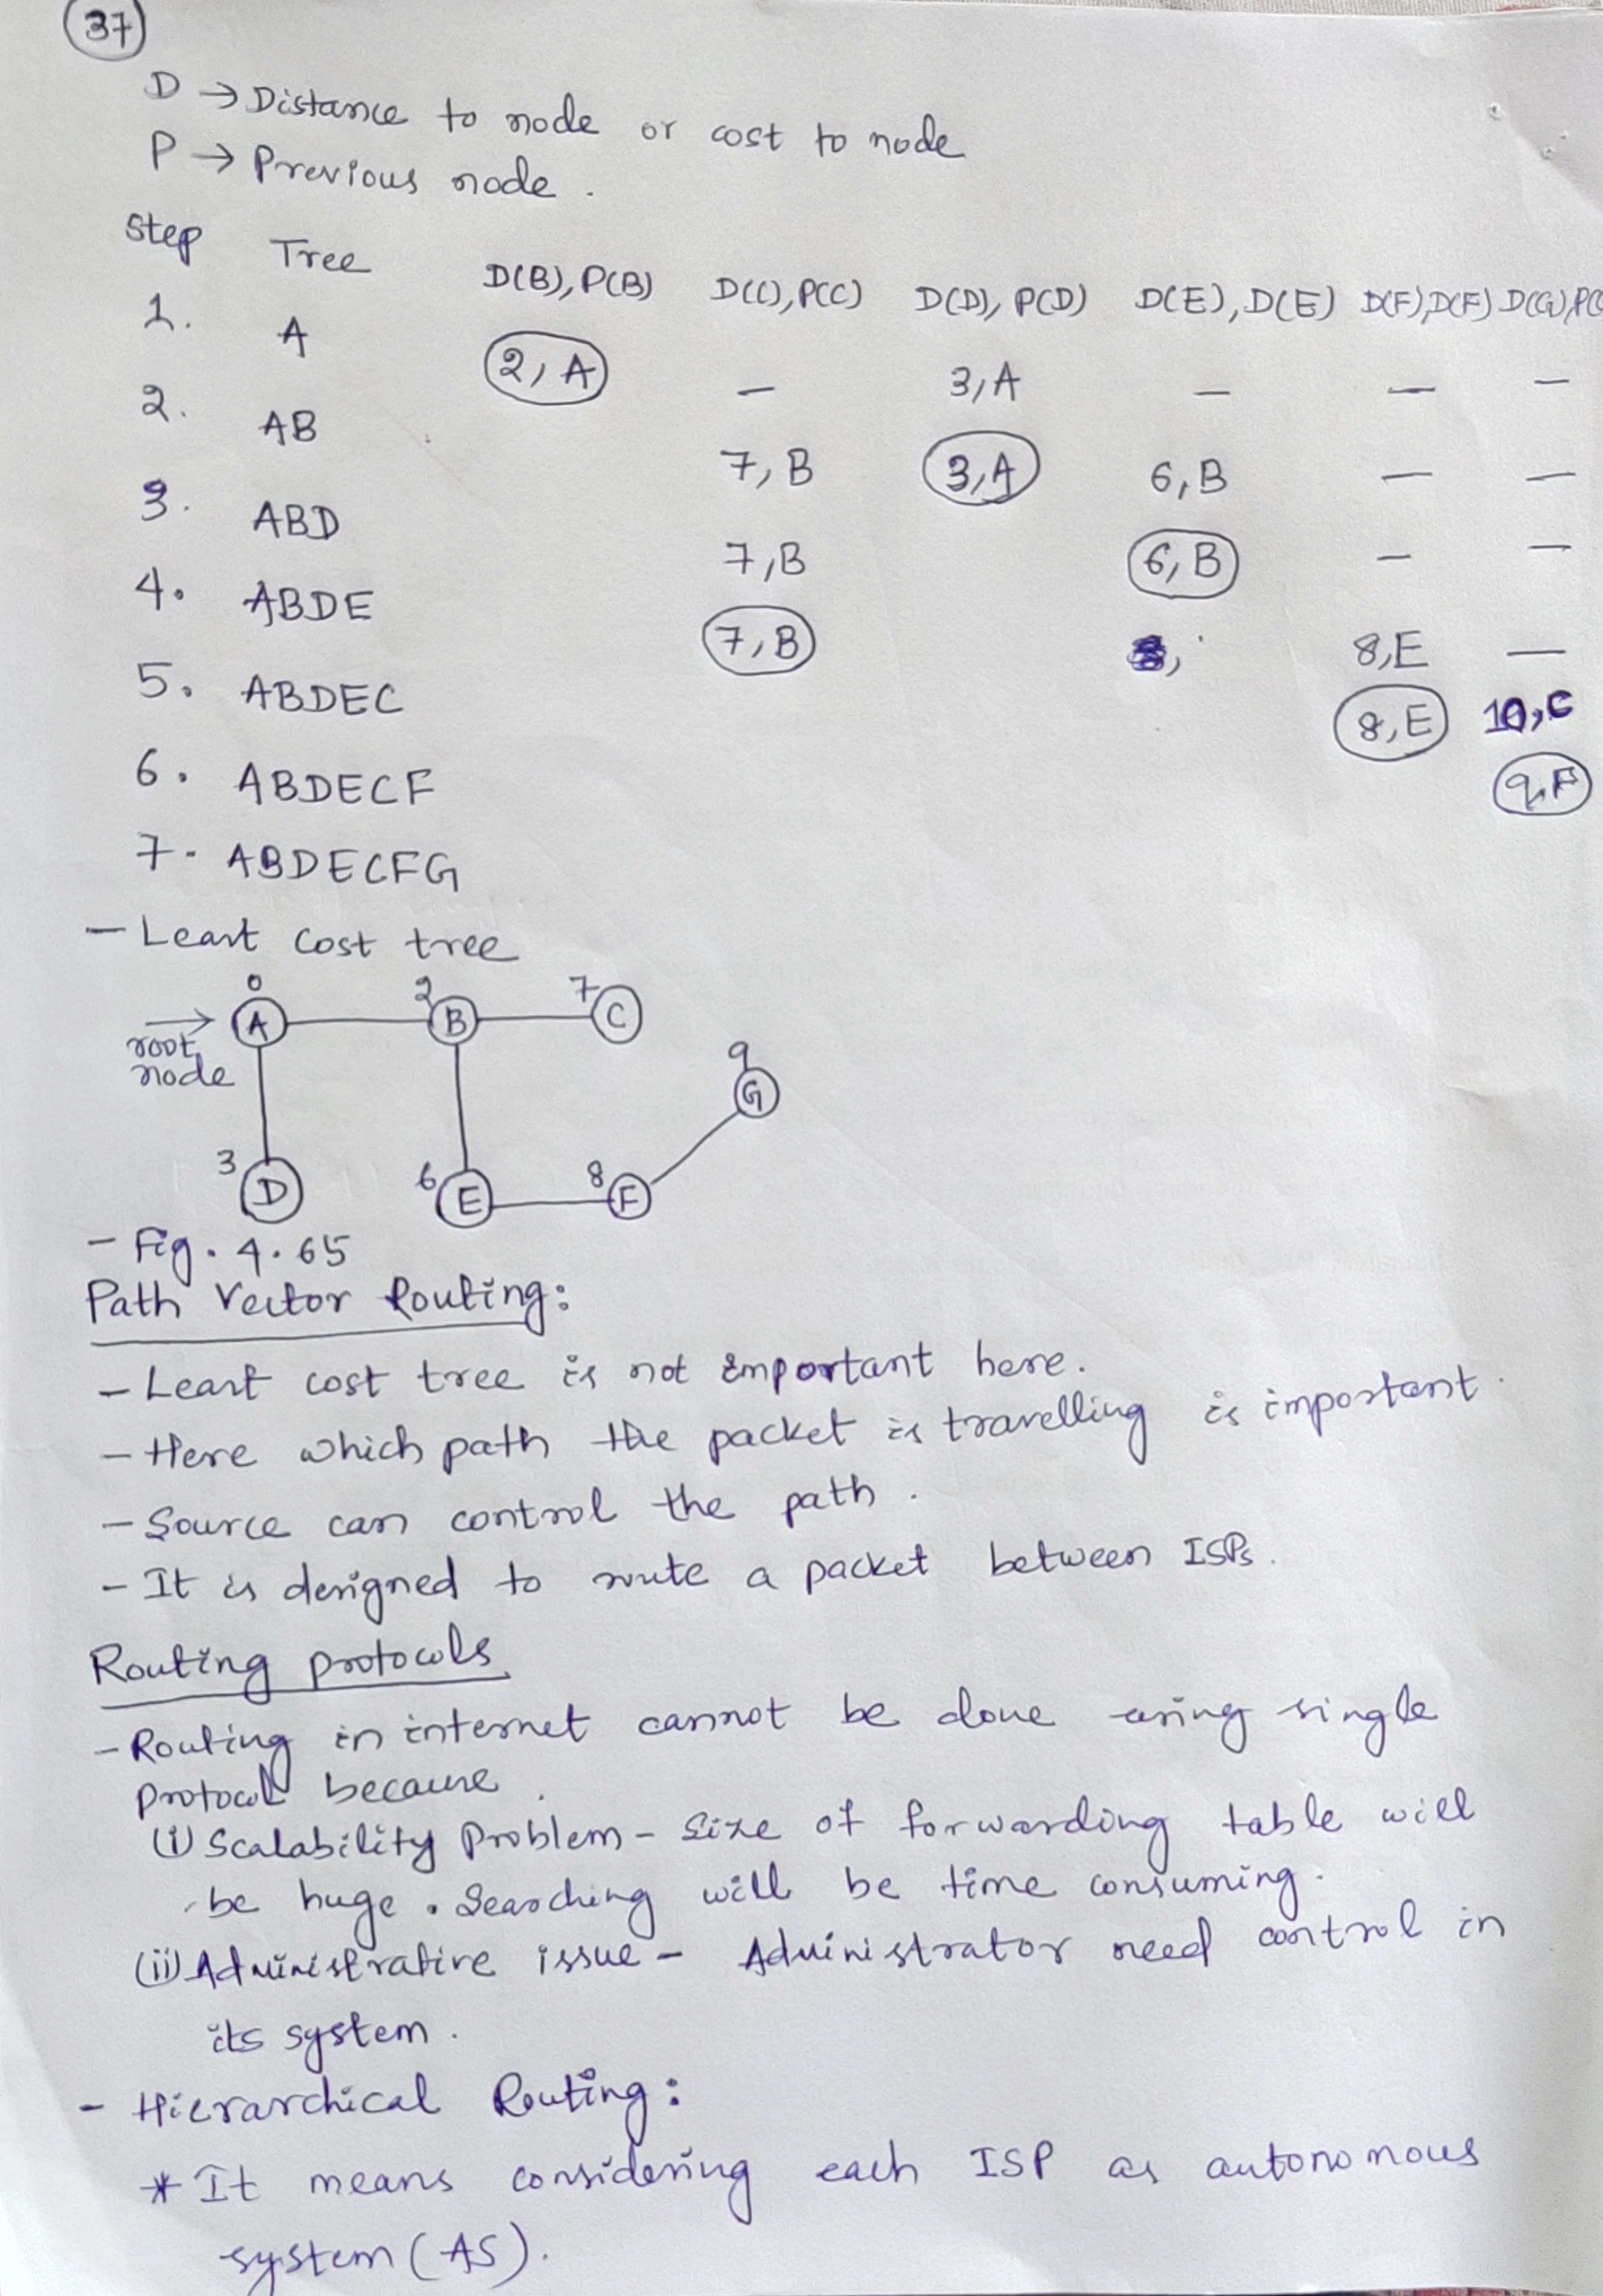 37
D → Distance to node or cost to node
P → Previous node .
Step Tree D(B), P(B) D(C), P(C) D(D), P(D) D(E), D(E) D(F), D(F) D(G), P(G
1. A (2, A) — 3, A — — —
2. AB 7, B (3, A) 6, B — —
3. ABD 7, B (6, B) — —
4. ABDE (7, B) 8, E —
5. ABDEC (8, E) 10, C
6. ABDECF (9, F)
7. ABDECFG
- Least cost tree
0 2 7
→ A B C
root
node
9
G
3 6 8
D E F
- Fig. 4.65
Path Vector Routing:
- Least cost tree is not important here.
- Here which path the packet is travelling is important.
- Source can control the path .
- It is designed to route a packet between ISPs.
Routing protocols
- Routing in internet cannot be done using single
protocol because .
(i) Scalability Problem - Size of forwarding table will
be huge . Searching will be time consuming.
(ii) Administrative issue - Administrator need control in
its system .
- Hierarchical Routing:
* It means considering each ISP as autonomous
system (AS).